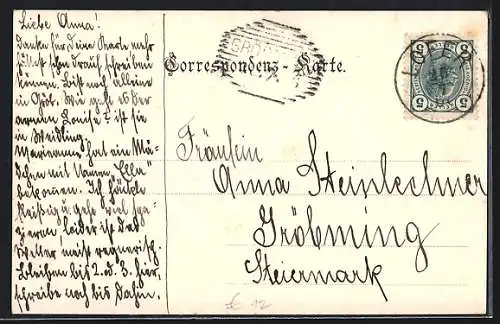 Liebe Anna!
Danke für Deine Karte mehr
schreiben
können. Bist noch alleine
in Göb. Wie geht es der
armen Louise? ist sie
in Weidling.
Marianne hat ein Mä-
dchen mit Namen "Ella"
bekommen. Ich
fleißig u. gehe viel spa-
zieren, leider ist das
Wetter meist regnerisch.
Bleiben bis 2. od. 3. hier,
schreibe noch bis dahin.
GRÖB
Correspondenz-Karte.
5 5
5 5
Fräulein
Anna Steinlechner
Gröbming
Steiermark
12